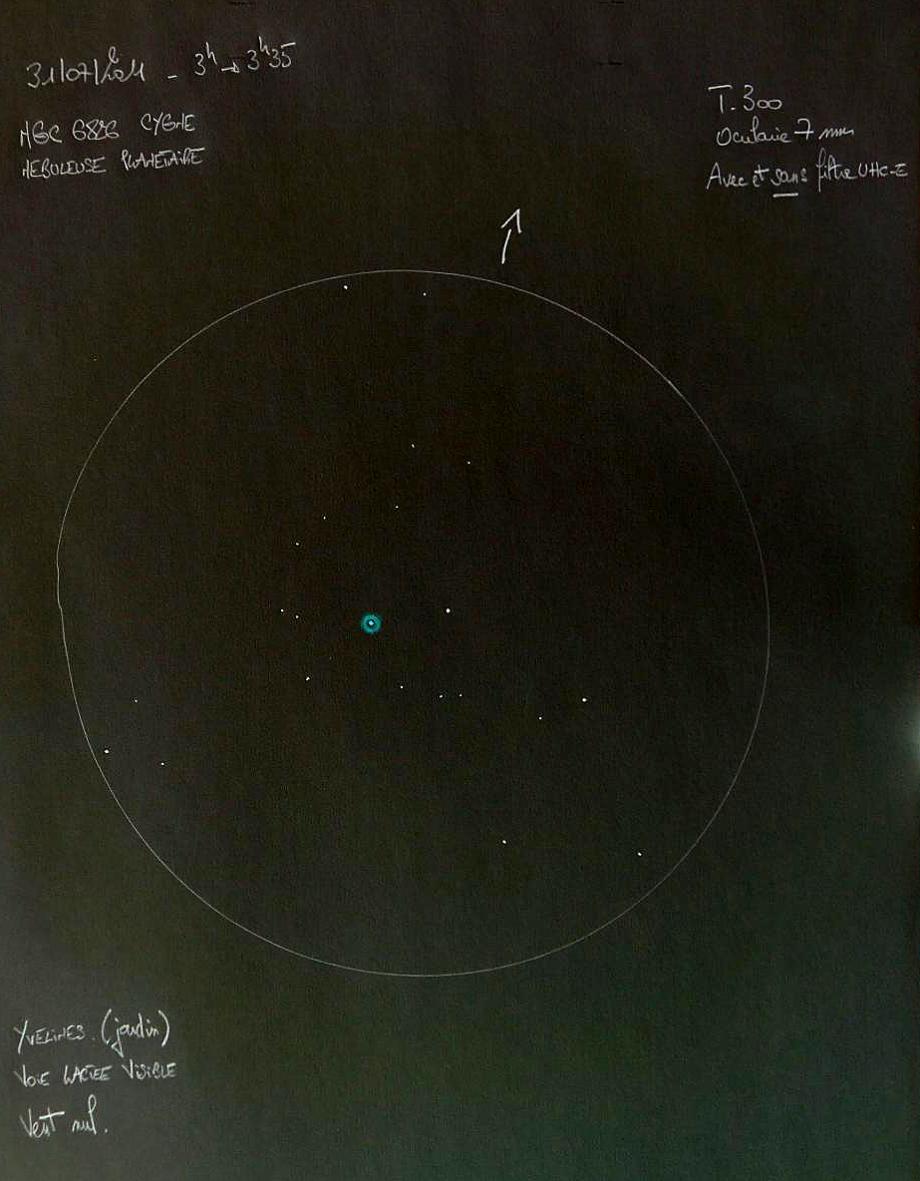 31/07/2011 - 3h → 3h35
NGC 6826 CYGNE
NEBULEUSE PLANETAIRE
T. 300
Oculaire 7 mm
Avec et sans filtre UHC-E
YVELINES. (jardin)
VOIE LACTEE VISIBLE
Vent nul.